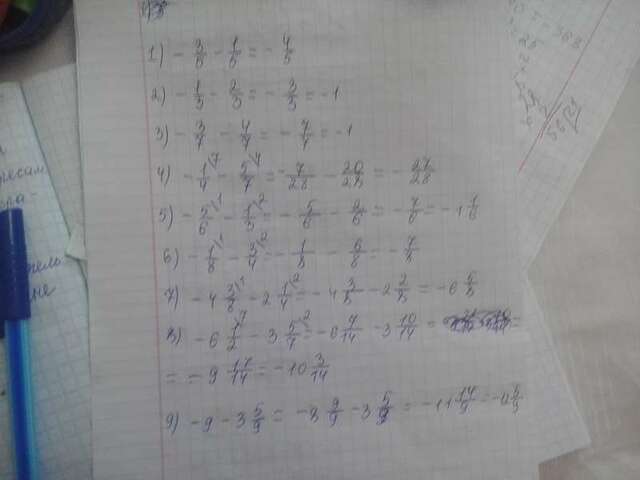 1) - 3/5 - 1/5 = - 4/5
2) - 1/3 - 2/3 = - 3/3 = -1
3) - 3/7 - 4/7 = - 7/7 = -1
4) - 1/4 \7 - 5/7 \4 = - 7/28 - 20/28 = - 27/28
5) - 5/6 \1 - 1/3 \2 = - 5/6 - 2/6 = - 7/6 = - 1 1/6
6) - 1/8 \1 - 3/4 \2 = - 1/8 - 6/8 = - 7/8
7) - 4 3/8 \1 - 2 1/4 \2 = - 4 3/8 - 2 2/8 = - 6 5/8
8) - 6 1/2 \7 - 3 5/7 \2 = - 6 7/14 - 3 10/14 = =
= - 9 17/14 = - 10 3/14
9) - 9 - 3 5/9 = - 8 9/9 - 3 5/9 = - 11 14/9 =